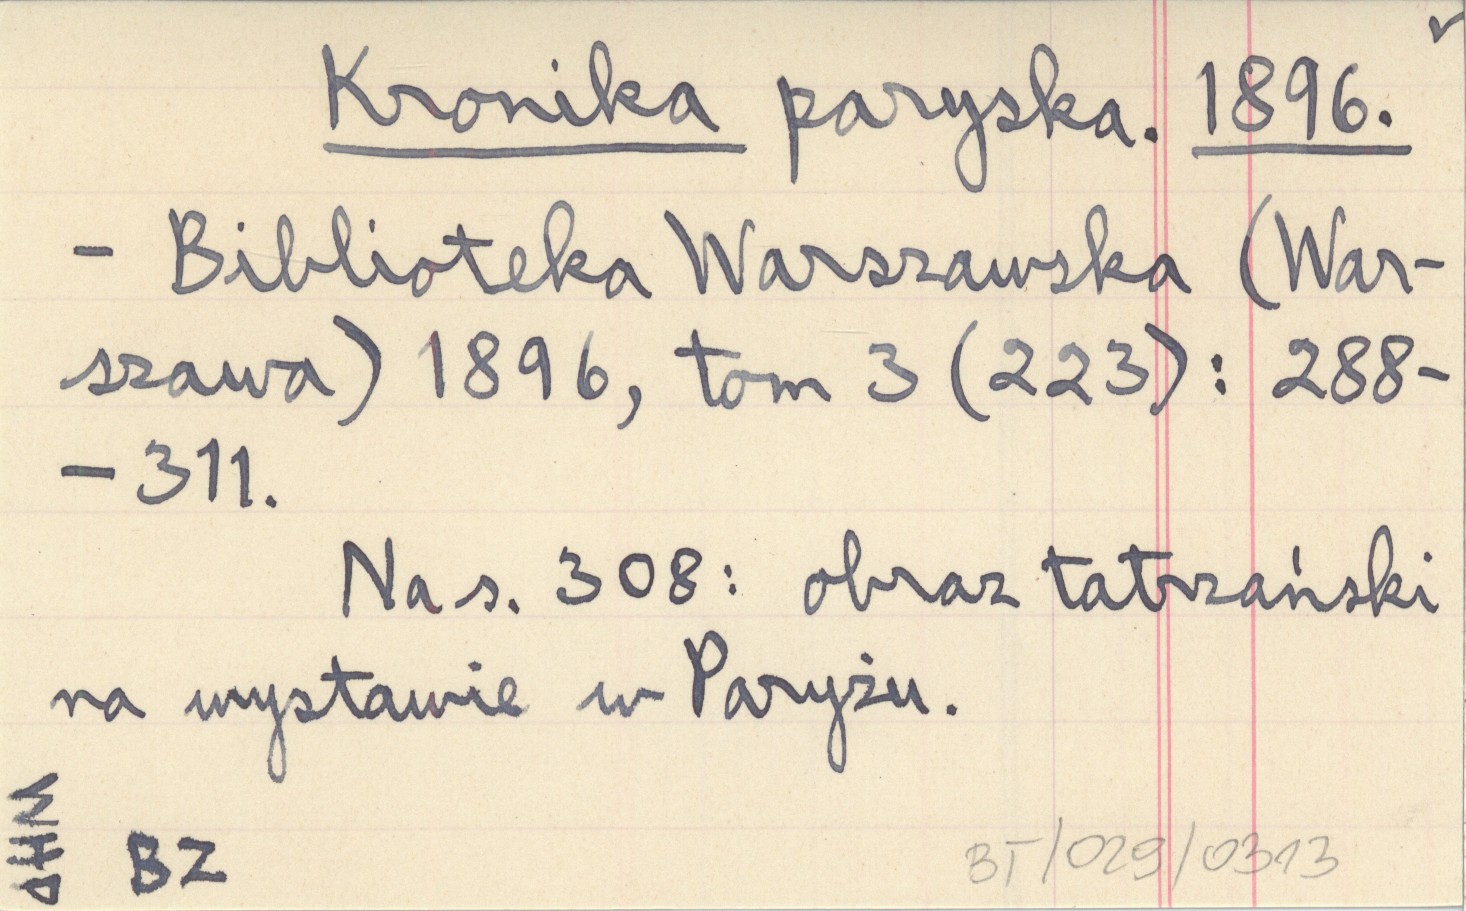 Kronika paryska. 1896.
- Biblioteka Warszawska (War-
szawa) 1896, tom 3 (223): 288-
- 311.
Na s. 308: obraz tatrzański
na wystawie w Paryżu.
WHD
BZ
BT/029/0313